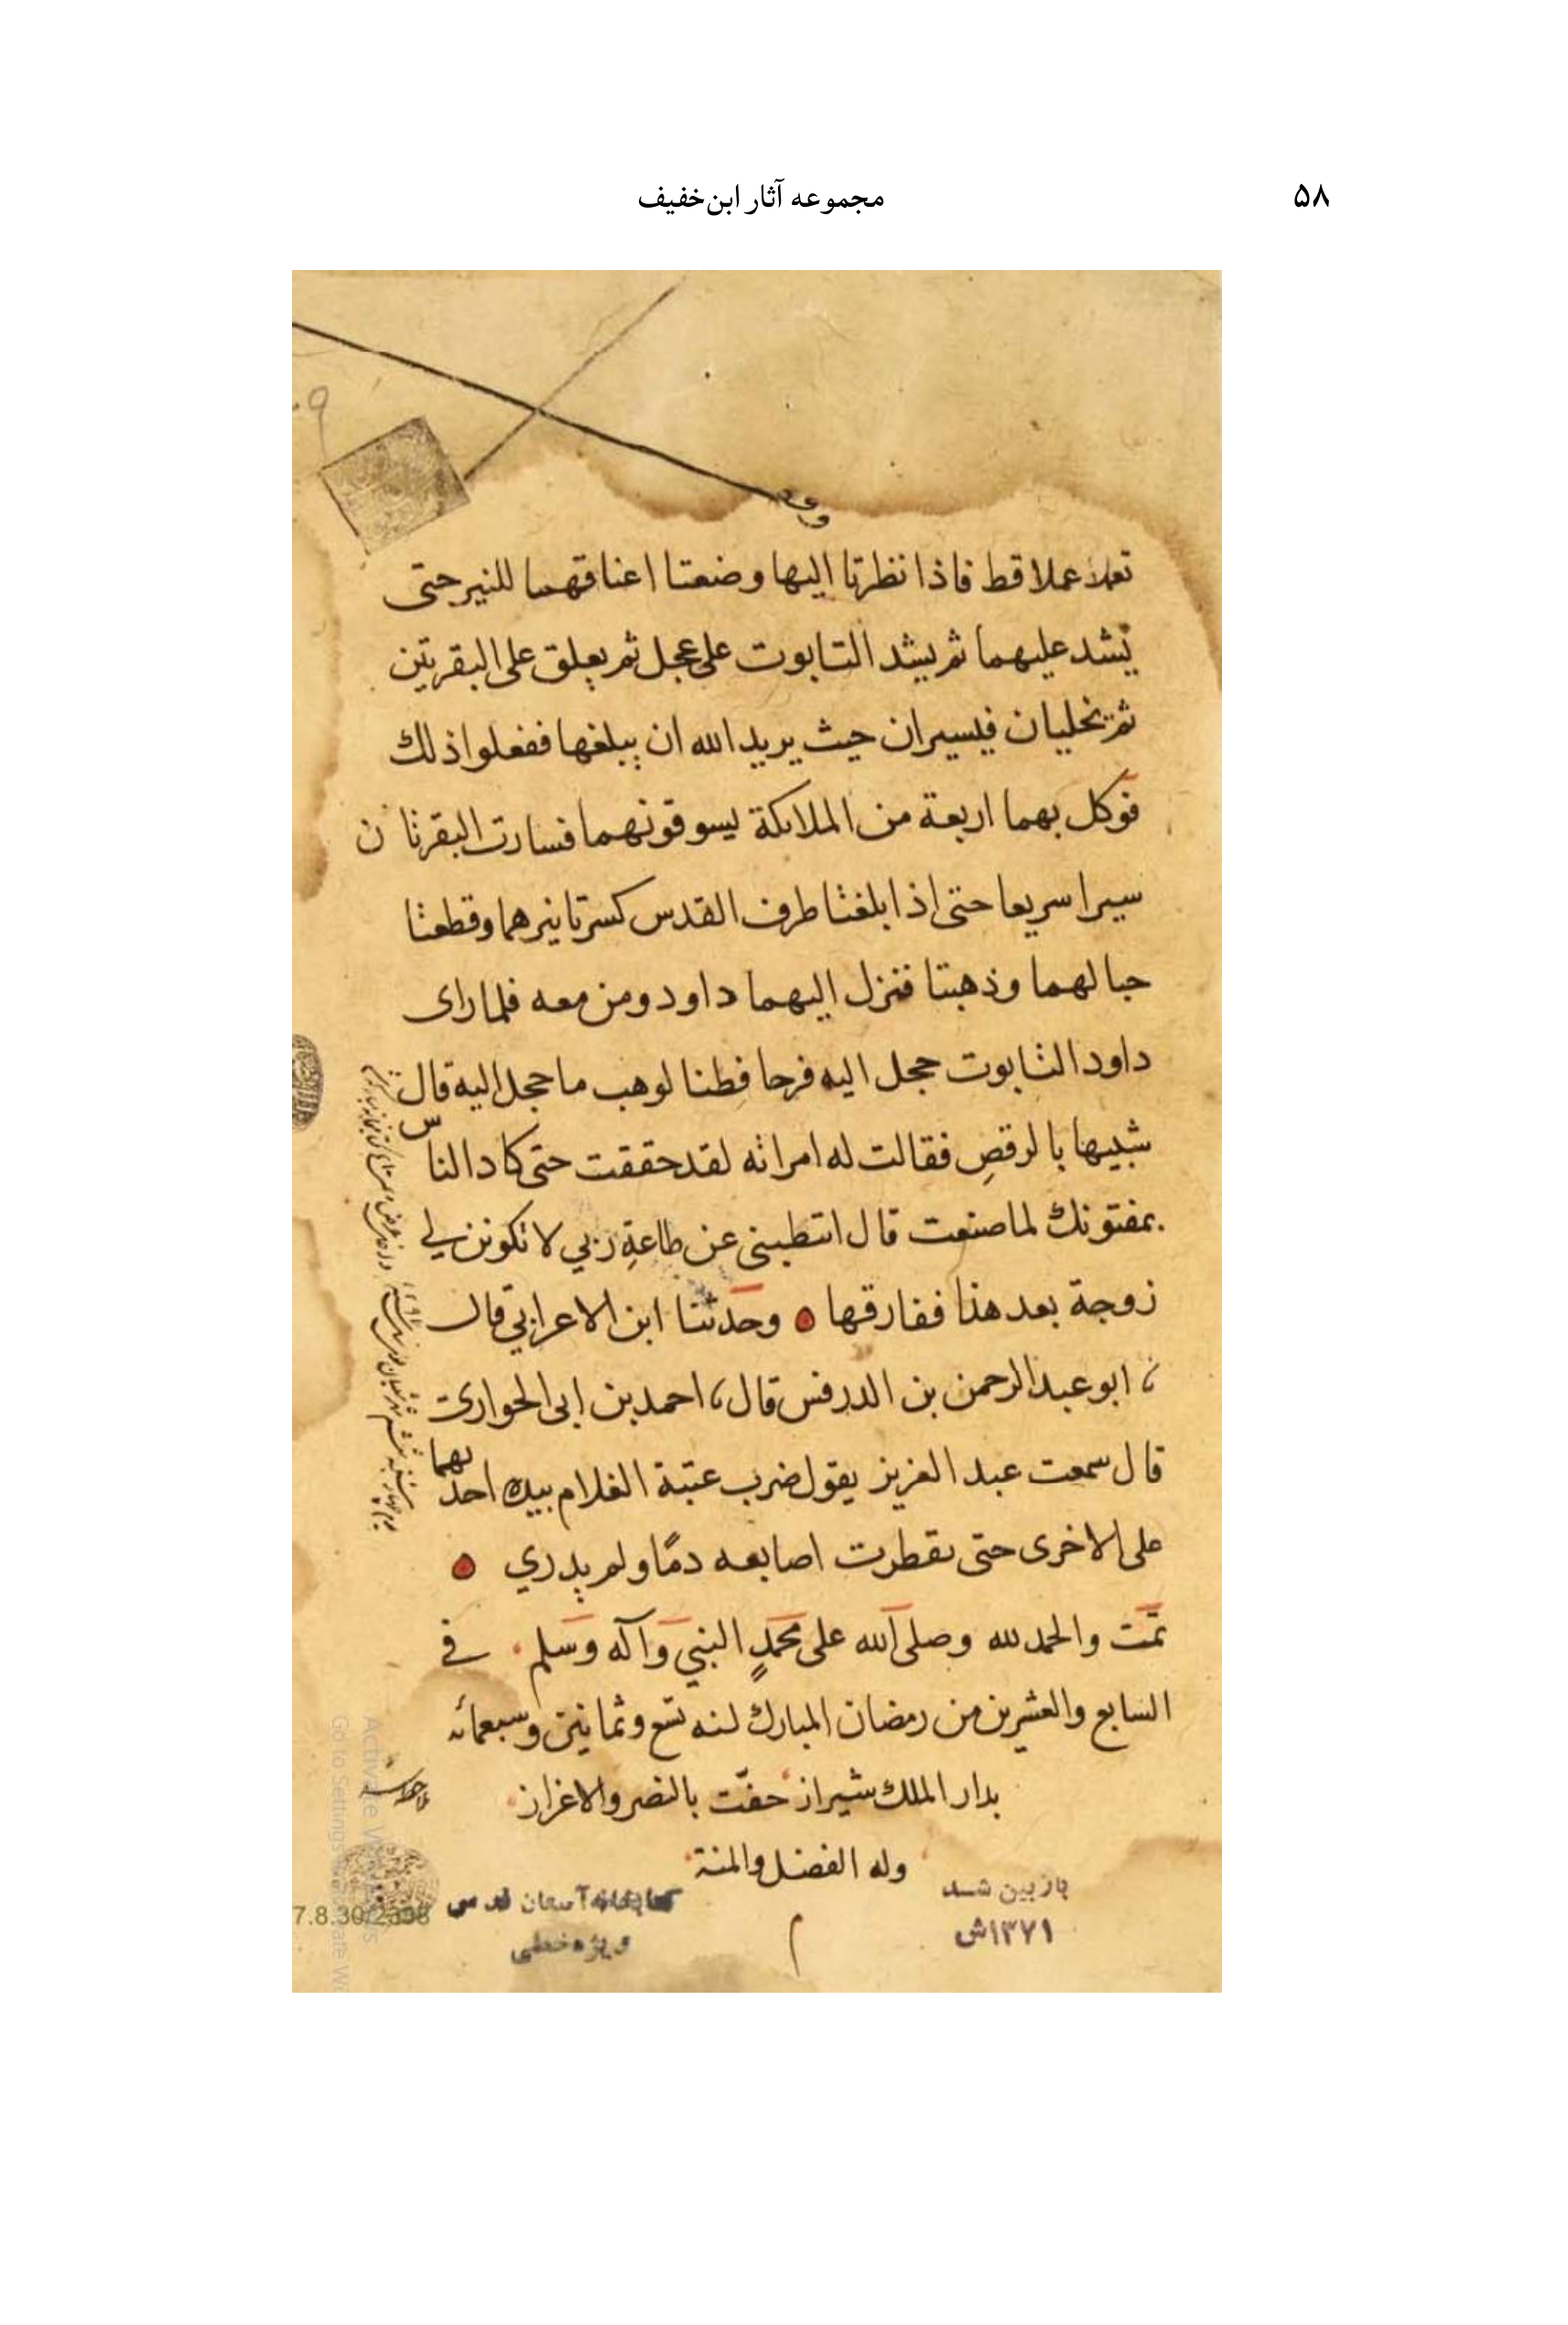 ۵۸
مجموعه آثار ابن‌خفیف
تعملا عملا قط فاذا نظرتا اليها وضعتا اعناقهما للنير حتى
يشد عليهما ثم يشد التابوت على عجل ثم يعلق على البقرتين
ثم تخليان فيسيران حيث يريد الله ان يبلغها ففعلوا ذلك
فوكل بهما اربعة من الملائكة يسوقونهما فسارت البقرتان
سيرا سريعا حتى اذا بلغتا طرف القدس كسرتا نيرهما وقطعتا
حبالهما وذهبتا فنزل اليهما داود ومن معه فلما راى
داود التابوت حجل اليه فرحا فطنا لوهب ما حجل اليه قال
شبيها بالرقصِ فقالت له امراته لقد حققت حتى كاد الناس
يمقتونك لما صنعت قال اتبطيني عن طاعةِ ربي لا تكونن لي
زوجة بعد هذا ففارقها ه وحدثنا ابن الاعرابي قال
ابو عبد الرحمن بن الدرفس قال احمد بن ابى الحوارى
قال سمعت عبد العزيز يقول ضرب عتبة الغلام بيده احدىهما
على الاخرى حتى تقطرت اصابعه دمًا ولم يدري ه
تمت والحمد لله وصلى الله على محمدٍ النبي وآله وسلم في
السابع والعشرين من رمضان المبارك لسنه تسع وثمانين وسبعمائه
بدار الملك شيراز حفّت بالنصر والاعزاز
وله الفضل والمنة
بازبین شد
۱۳۷۱ش
کتابخانه آستان قدس
ویژه خطی
7.8.30/2398
Activate Windows
Go to Settings